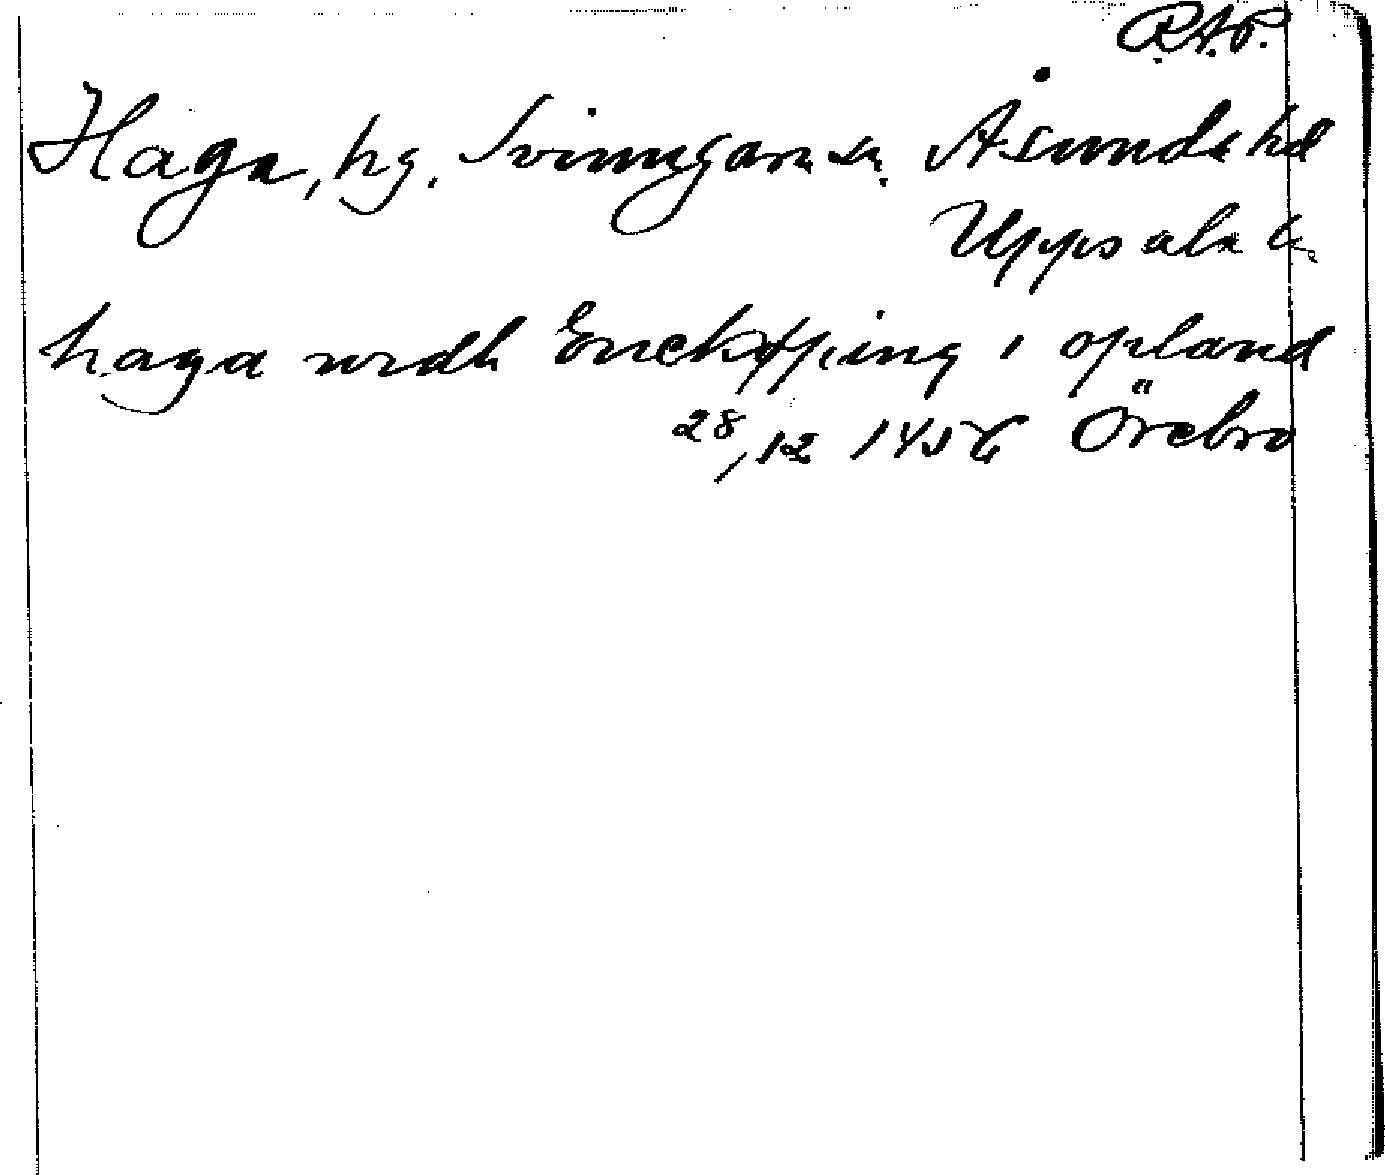 R.A.P.
Haga, hg. Svinngarn sn. Åsunda hd
Uppsala l.
haga widh Enekøping i opland
28/12 1456 Örebro